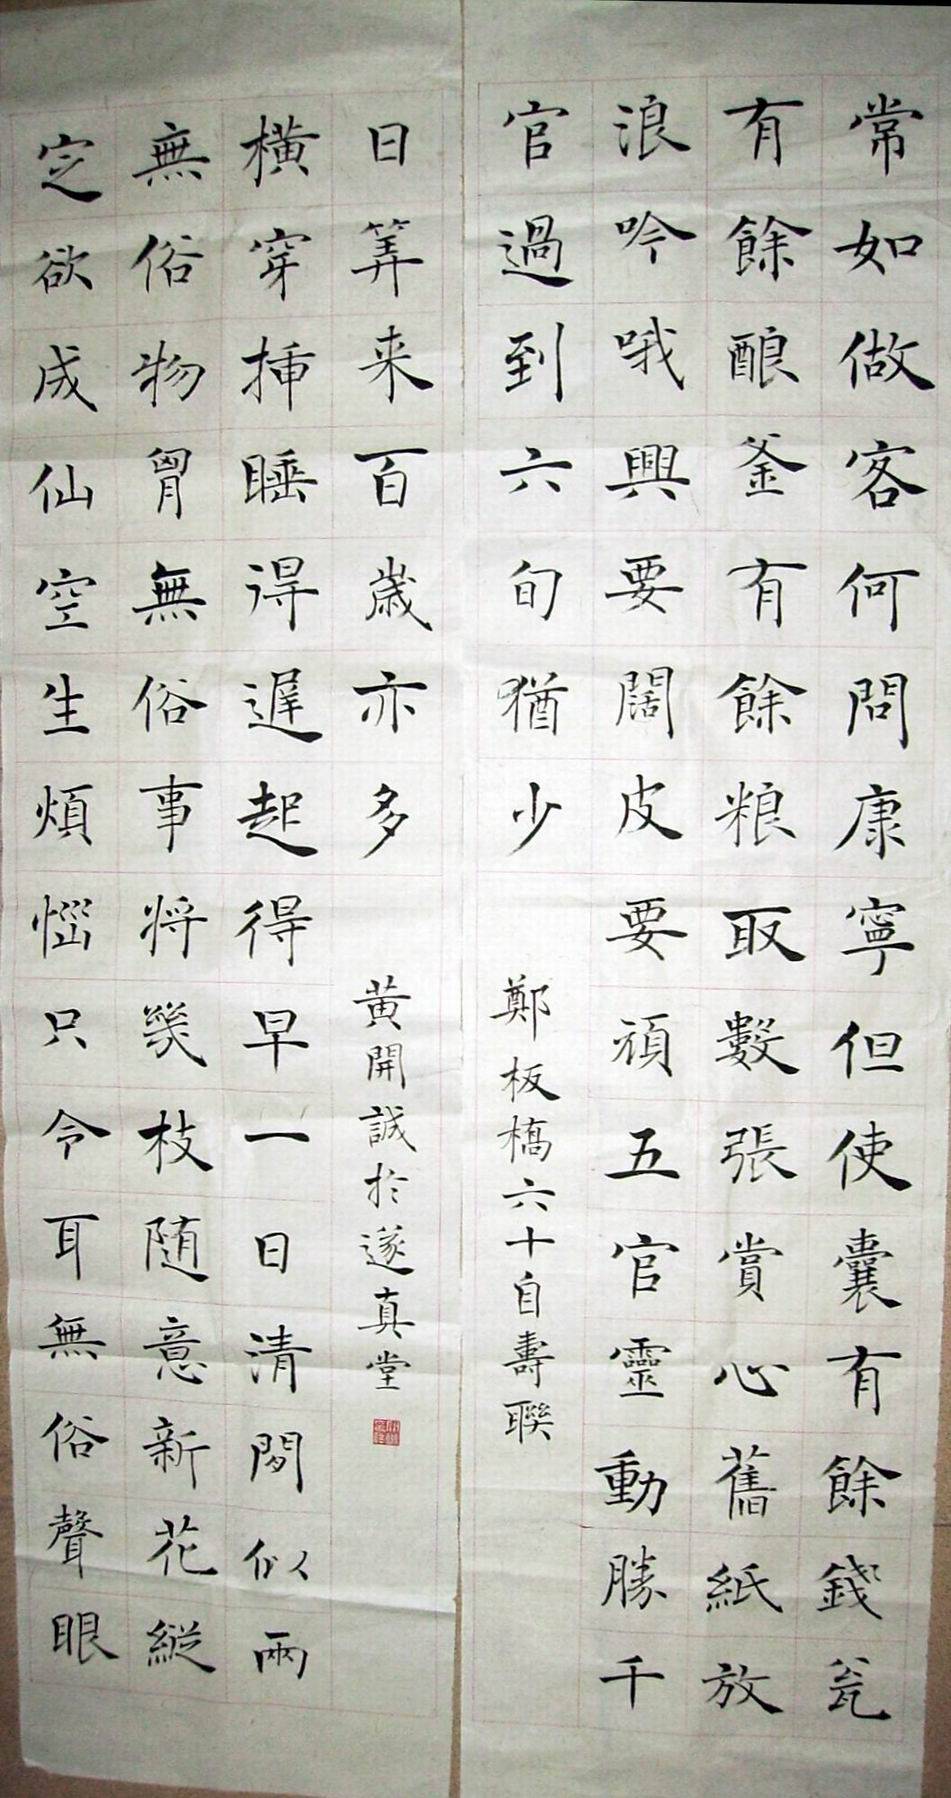 常如做客何問康寧但使囊有餘錢瓮
有餘酿釜有餘粮取數張賞心舊紙放
浪吟哦興要闊皮要頑五官靈動勝千
官過到六旬猶少
鄭板橋六十自壽聯
定欲成仙空生煩惱只令耳無俗聲眼
無俗物胷無俗事将幾枝随意新花縱
橫穿揷睡得遲起得早一日清閒似兩
日筭来百歲亦多
黄開誠於遂真堂